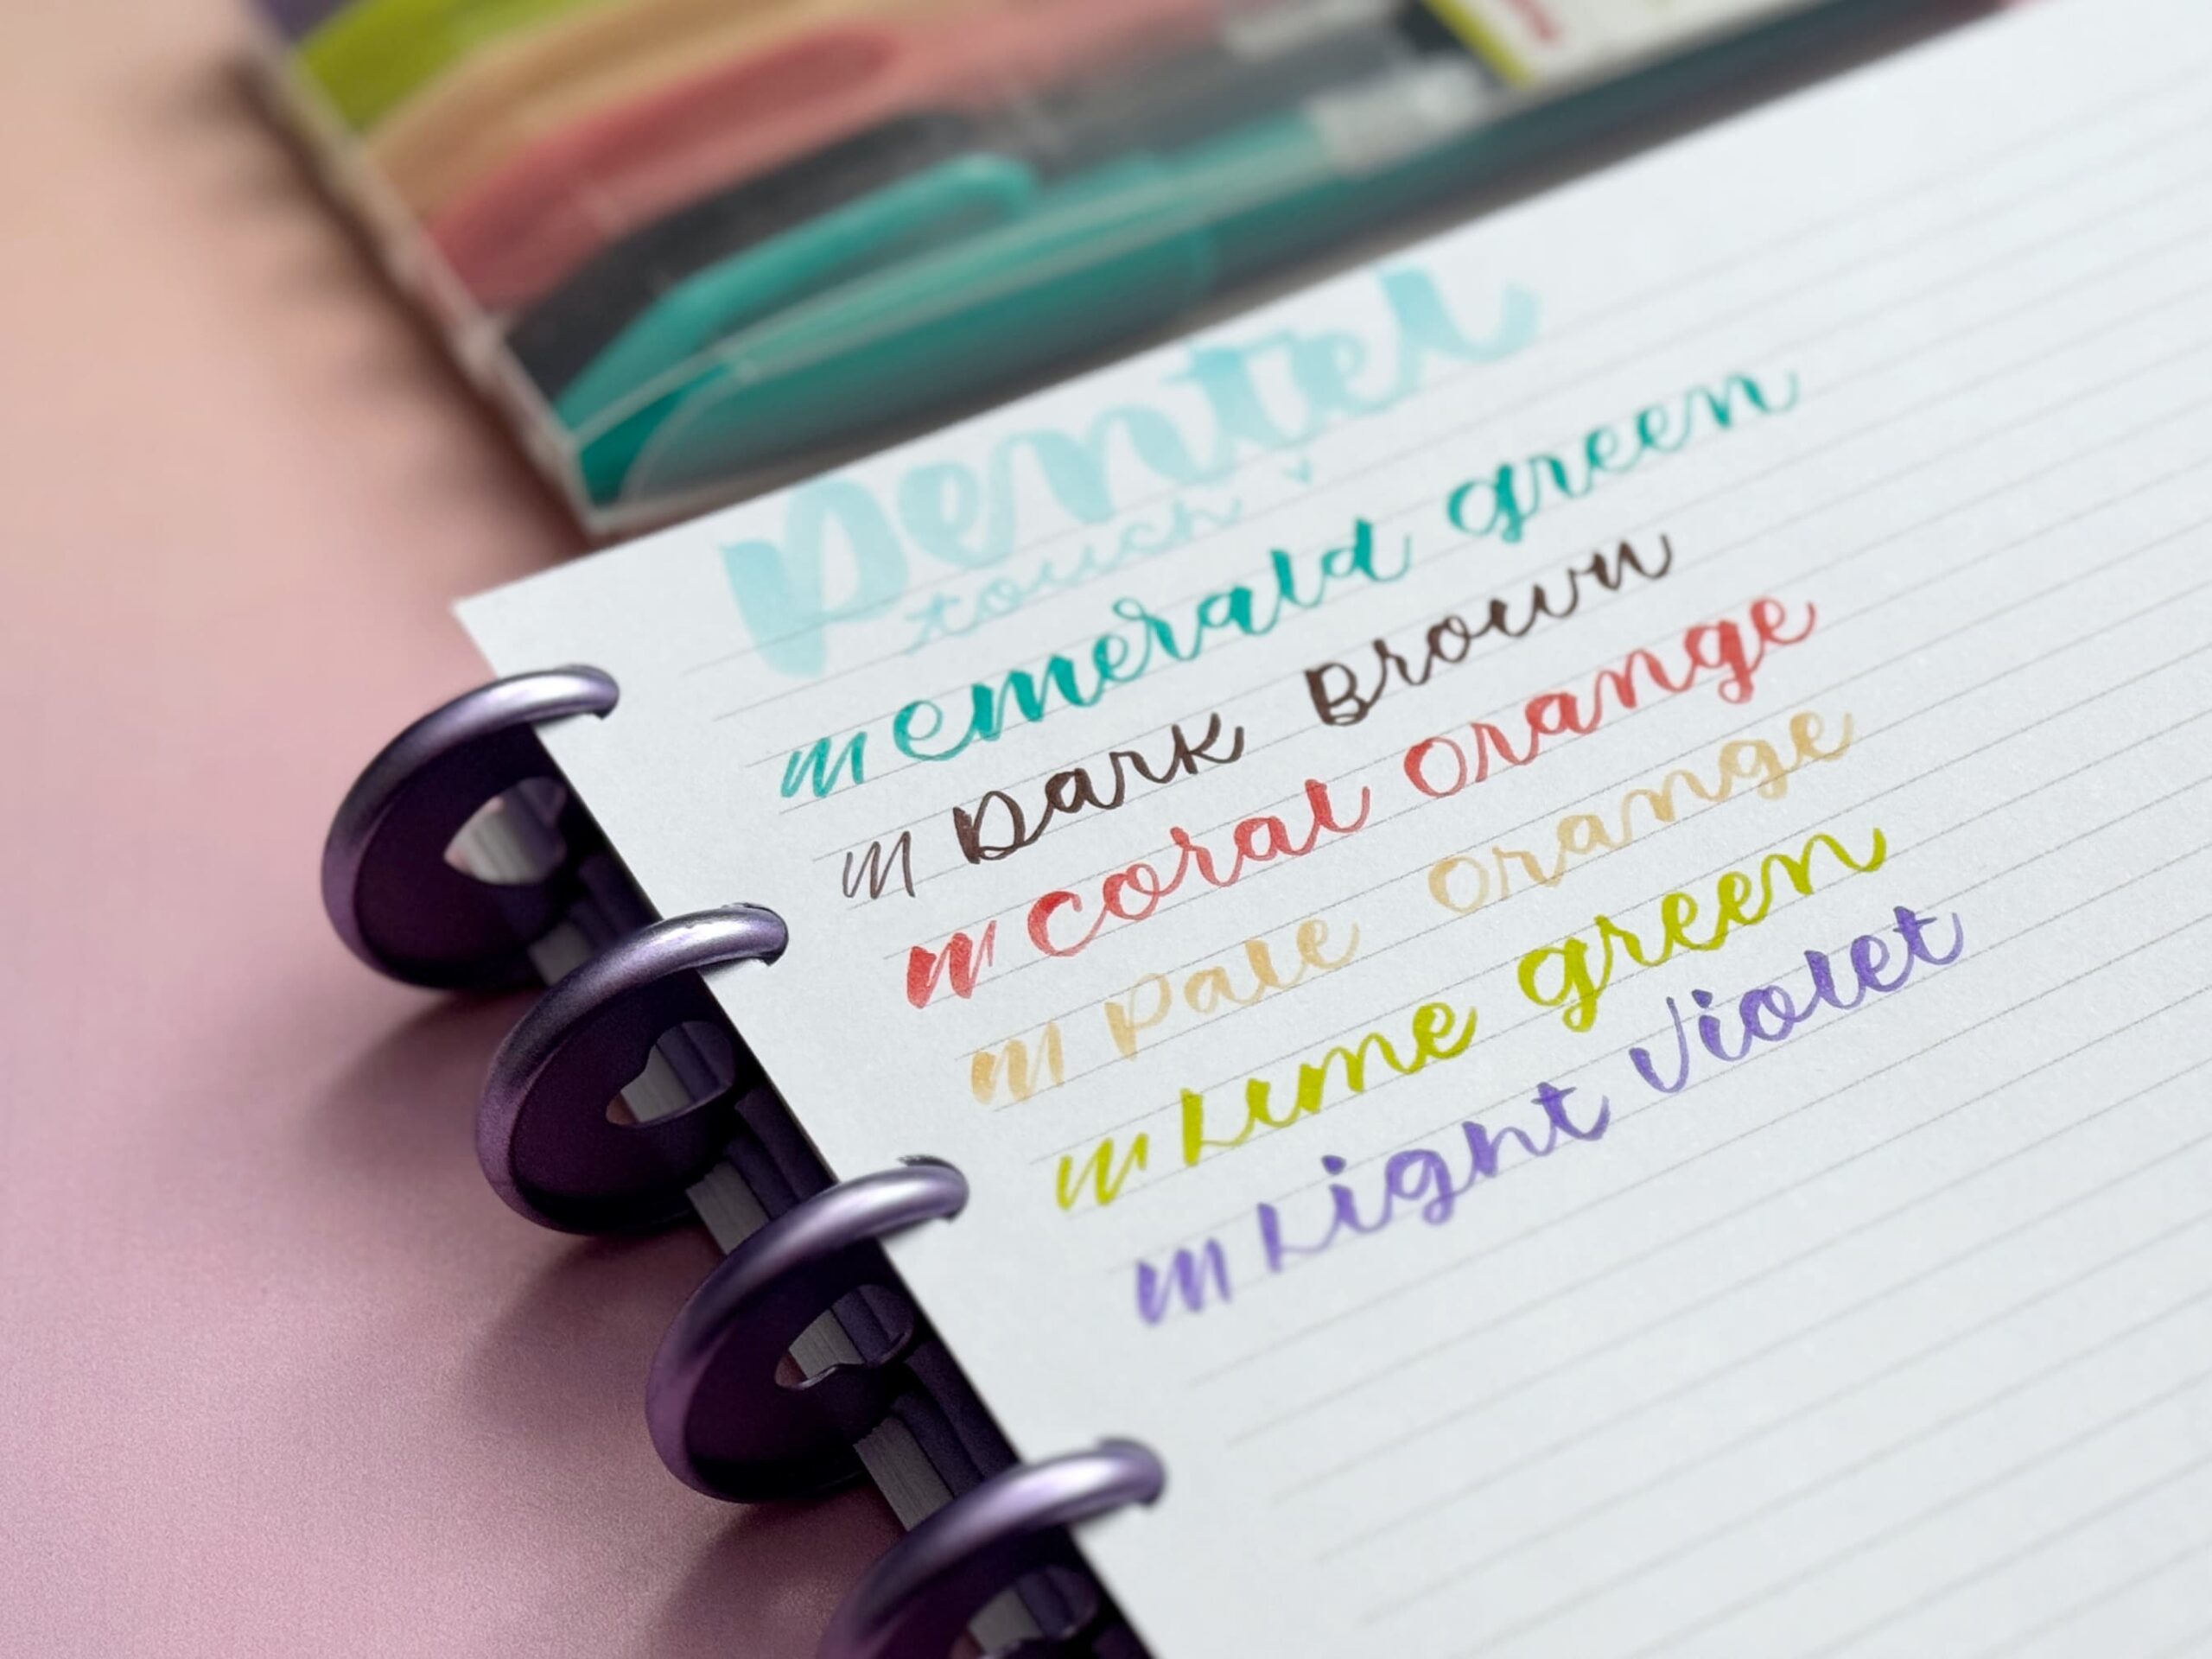 pentel
touch
emerald green
Dark Brown
coral orange
pale orange
Lime green
Light violet